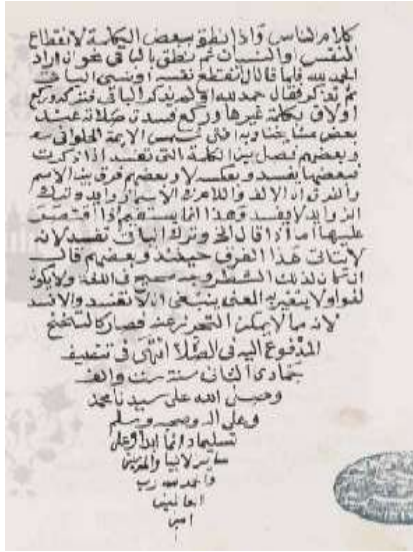 كلام الناس واذا نطق ببعض الكلمة لانقطاع
النفس او النسيان ثم نطق بالباقي نحو ان اراد
الحمد لله فلما قال ال انقطع نفسه او نسي الباقي
ثم تذكر فقال حمد لله او لم يتذكر الباقي فتركه وركع
او لاق بكلمة غيرها وركع فسدت صلاته عند
بعض مشايخنا وبه افتى شمس الايمة الحلواني
وبعضهم فصل بين الكلمة التي تفسد اذا ذكرت
فبعضها يفسد وبعضهم فرق بين الاسم
والفرق ان الالف واللام في الاسم زوايد وترك
الزوايد لا يفسد وهذا انما يستقيم اذا اقتصر
عليها اما اذا قال الح وترك الباقي تفسد لانه
لا يتاتى هذا الفرق حينئذ وبعضهم قال
ان كان لذلك الشطر وجه صحيح في اللغة ولا يكون
لغوا ولا يتغير به المعنى ينبغي ان لا تفسد والا فسد
لانه مما لا يمكن التحرز عنه فصار كالتنحنح
المدفوع اليه في الصلاة انتهى في تنصيف
جمادى الثاني سنة والف
وصلى الله على سيدنا محمد
وعلى اله وصحبه وسلم
تسليما دائما ابدا وعلى
ساير الانبيا والمرسلين
والحمد لله رب
العالمين
امين